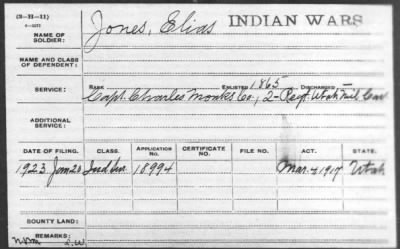 (3-H-11)
NAME OF SOLDIER: Jones, Elias INDIAN WARS
NAME AND CLASS OF DEPENDENT:
SERVICE: RANK ENLISTED 1865 DISCHARGED —
Capt. Charles Monks Co., 2- Regt. Utah Mil. Cav
ADDITIONAL SERVICE:
DATE OF FILING. CLASS. APPLICATION NO. CERTIFICATE NO. FILE NO. ACT. STATE.
1923 Jan 20 Ind Sur 18994 Mar. 4 1917 Utah
BOUNTY LAND:
REMARKS: